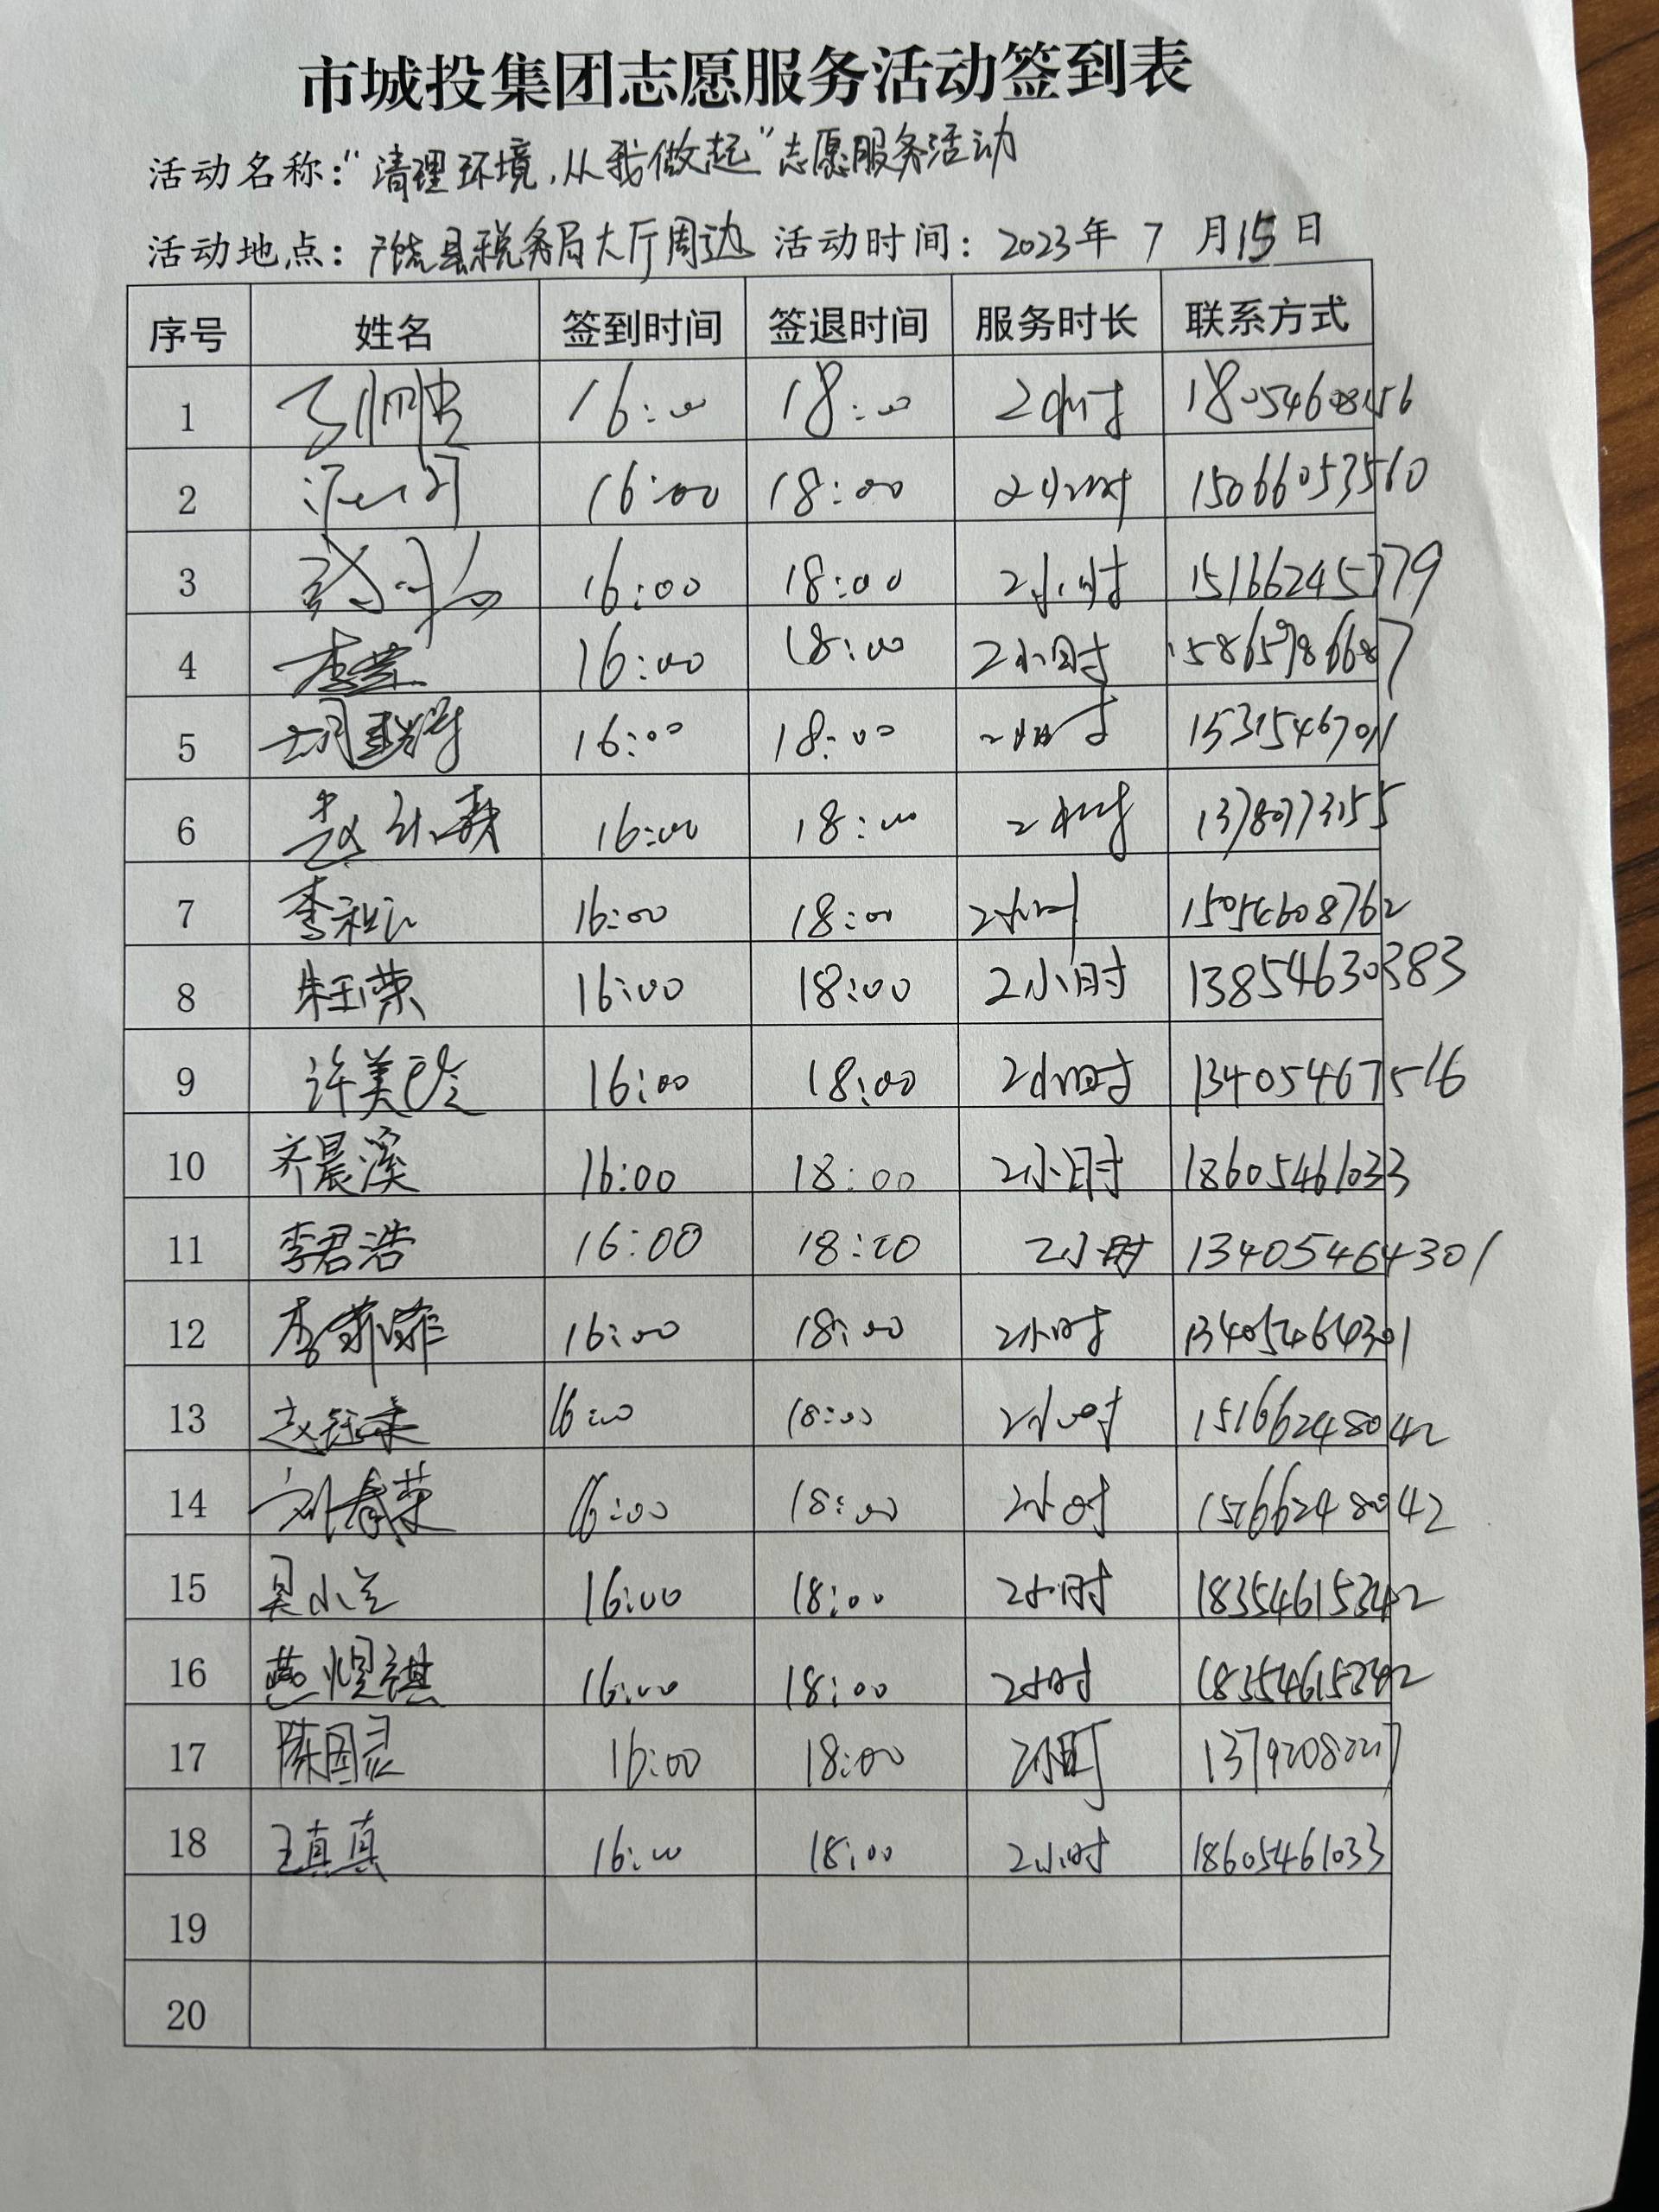 市城投集团志愿服务活动签到表
活动名称:“清理环境,从我做起”志愿服务活动
活动地点:广饶县税务局大厅周边 活动时间: 2023年 7 月15日
序号 姓名 签到时间 签退时间 服务时长 联系方式
1 16:00 18:00 2小时
2 16:00 18:00 2小时 15066053560
3 16:00 18:00 2小时 15166245779
4 16:00 18:00 2小时 15865986687
5 16:00 18:00 2小时
6 16:00 18:00 2小时
7 16:00 18:00 2小时 15054608762
8 朱玉荣 16:00 18:00 2小时 13854630383
9 许美玲 16:00 18:00 2小时 13405467516
10 齐晨溪 16:00 18:00 2小时 18605461033
11 李君浩 16:00 18:00 2小时 13405464301
12 李菲菲 16:00 18:00 2小时 13405464301
13 16:00 18:00 2小时 15166248042
14 刘春荣 16:00 18:00 2小时 15166248042
15 吴小兰 16:00 18:00 2小时 18354615342
16 燕煜祺 16:00 18:00 2小时 18354615342
17 陈图灵 16:00 18:00 2小时
18 王真真 16:00 18:00 2小时 18605461033
19
20